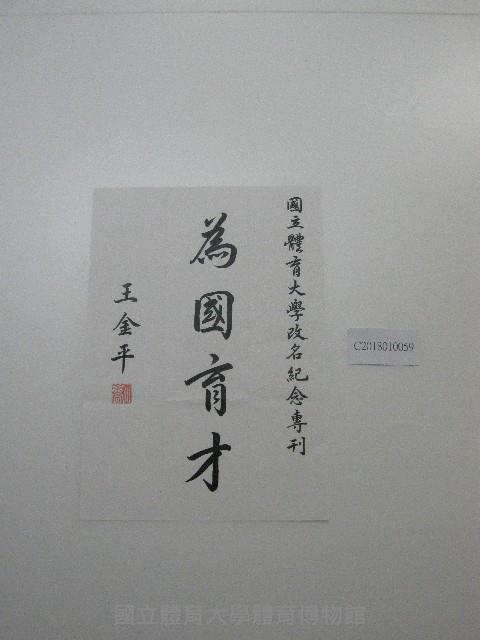 國立體育大學改名紀念專刊
為國育才
王金平
C2018010059
國立體育大學體育博物館